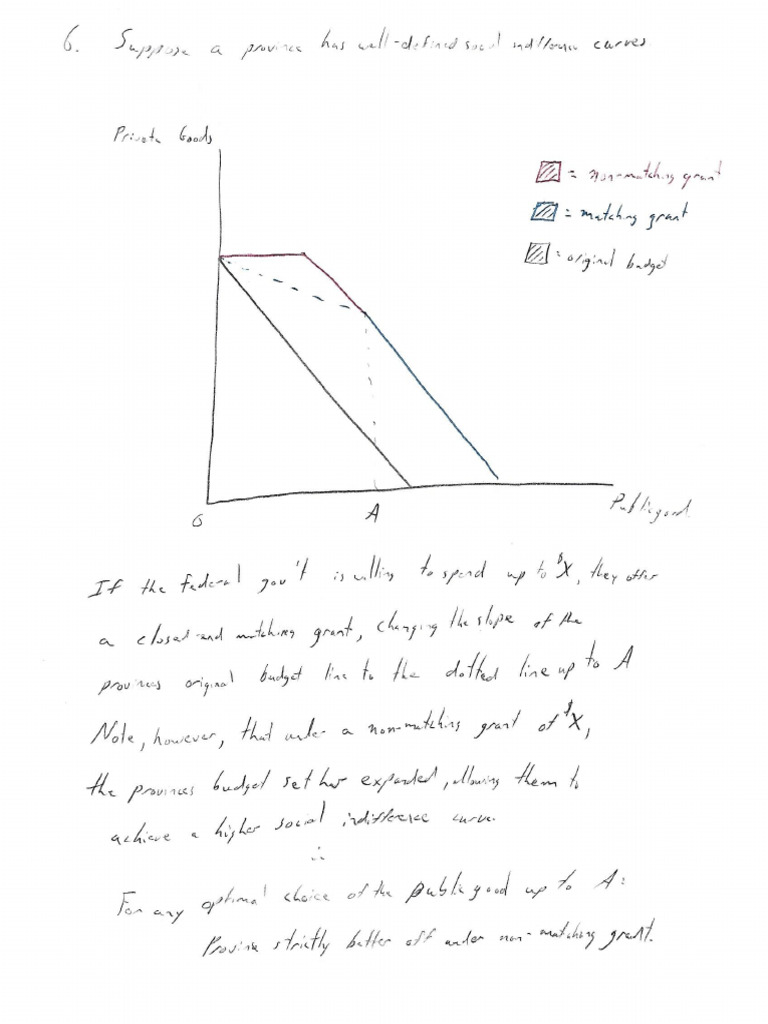 6. Suppose a province has well-defined social indifference curves.
Private Goods
= non-matching grant
= matching grant
= original budget
Public good
0
A
If the federal gov't is willing to spend up to $X, they offer
a closed-end matching grant, changing the slope of the
provinces original budget line to the dotted line up to A
Note, however, that under a non-matching grant of $X,
the provinces budget set has expanded, allowing them to
achieve a higher social indifference curve.
∴
For any optimal choice of the public good up to A:
Province strictly better off under non-matching grant.